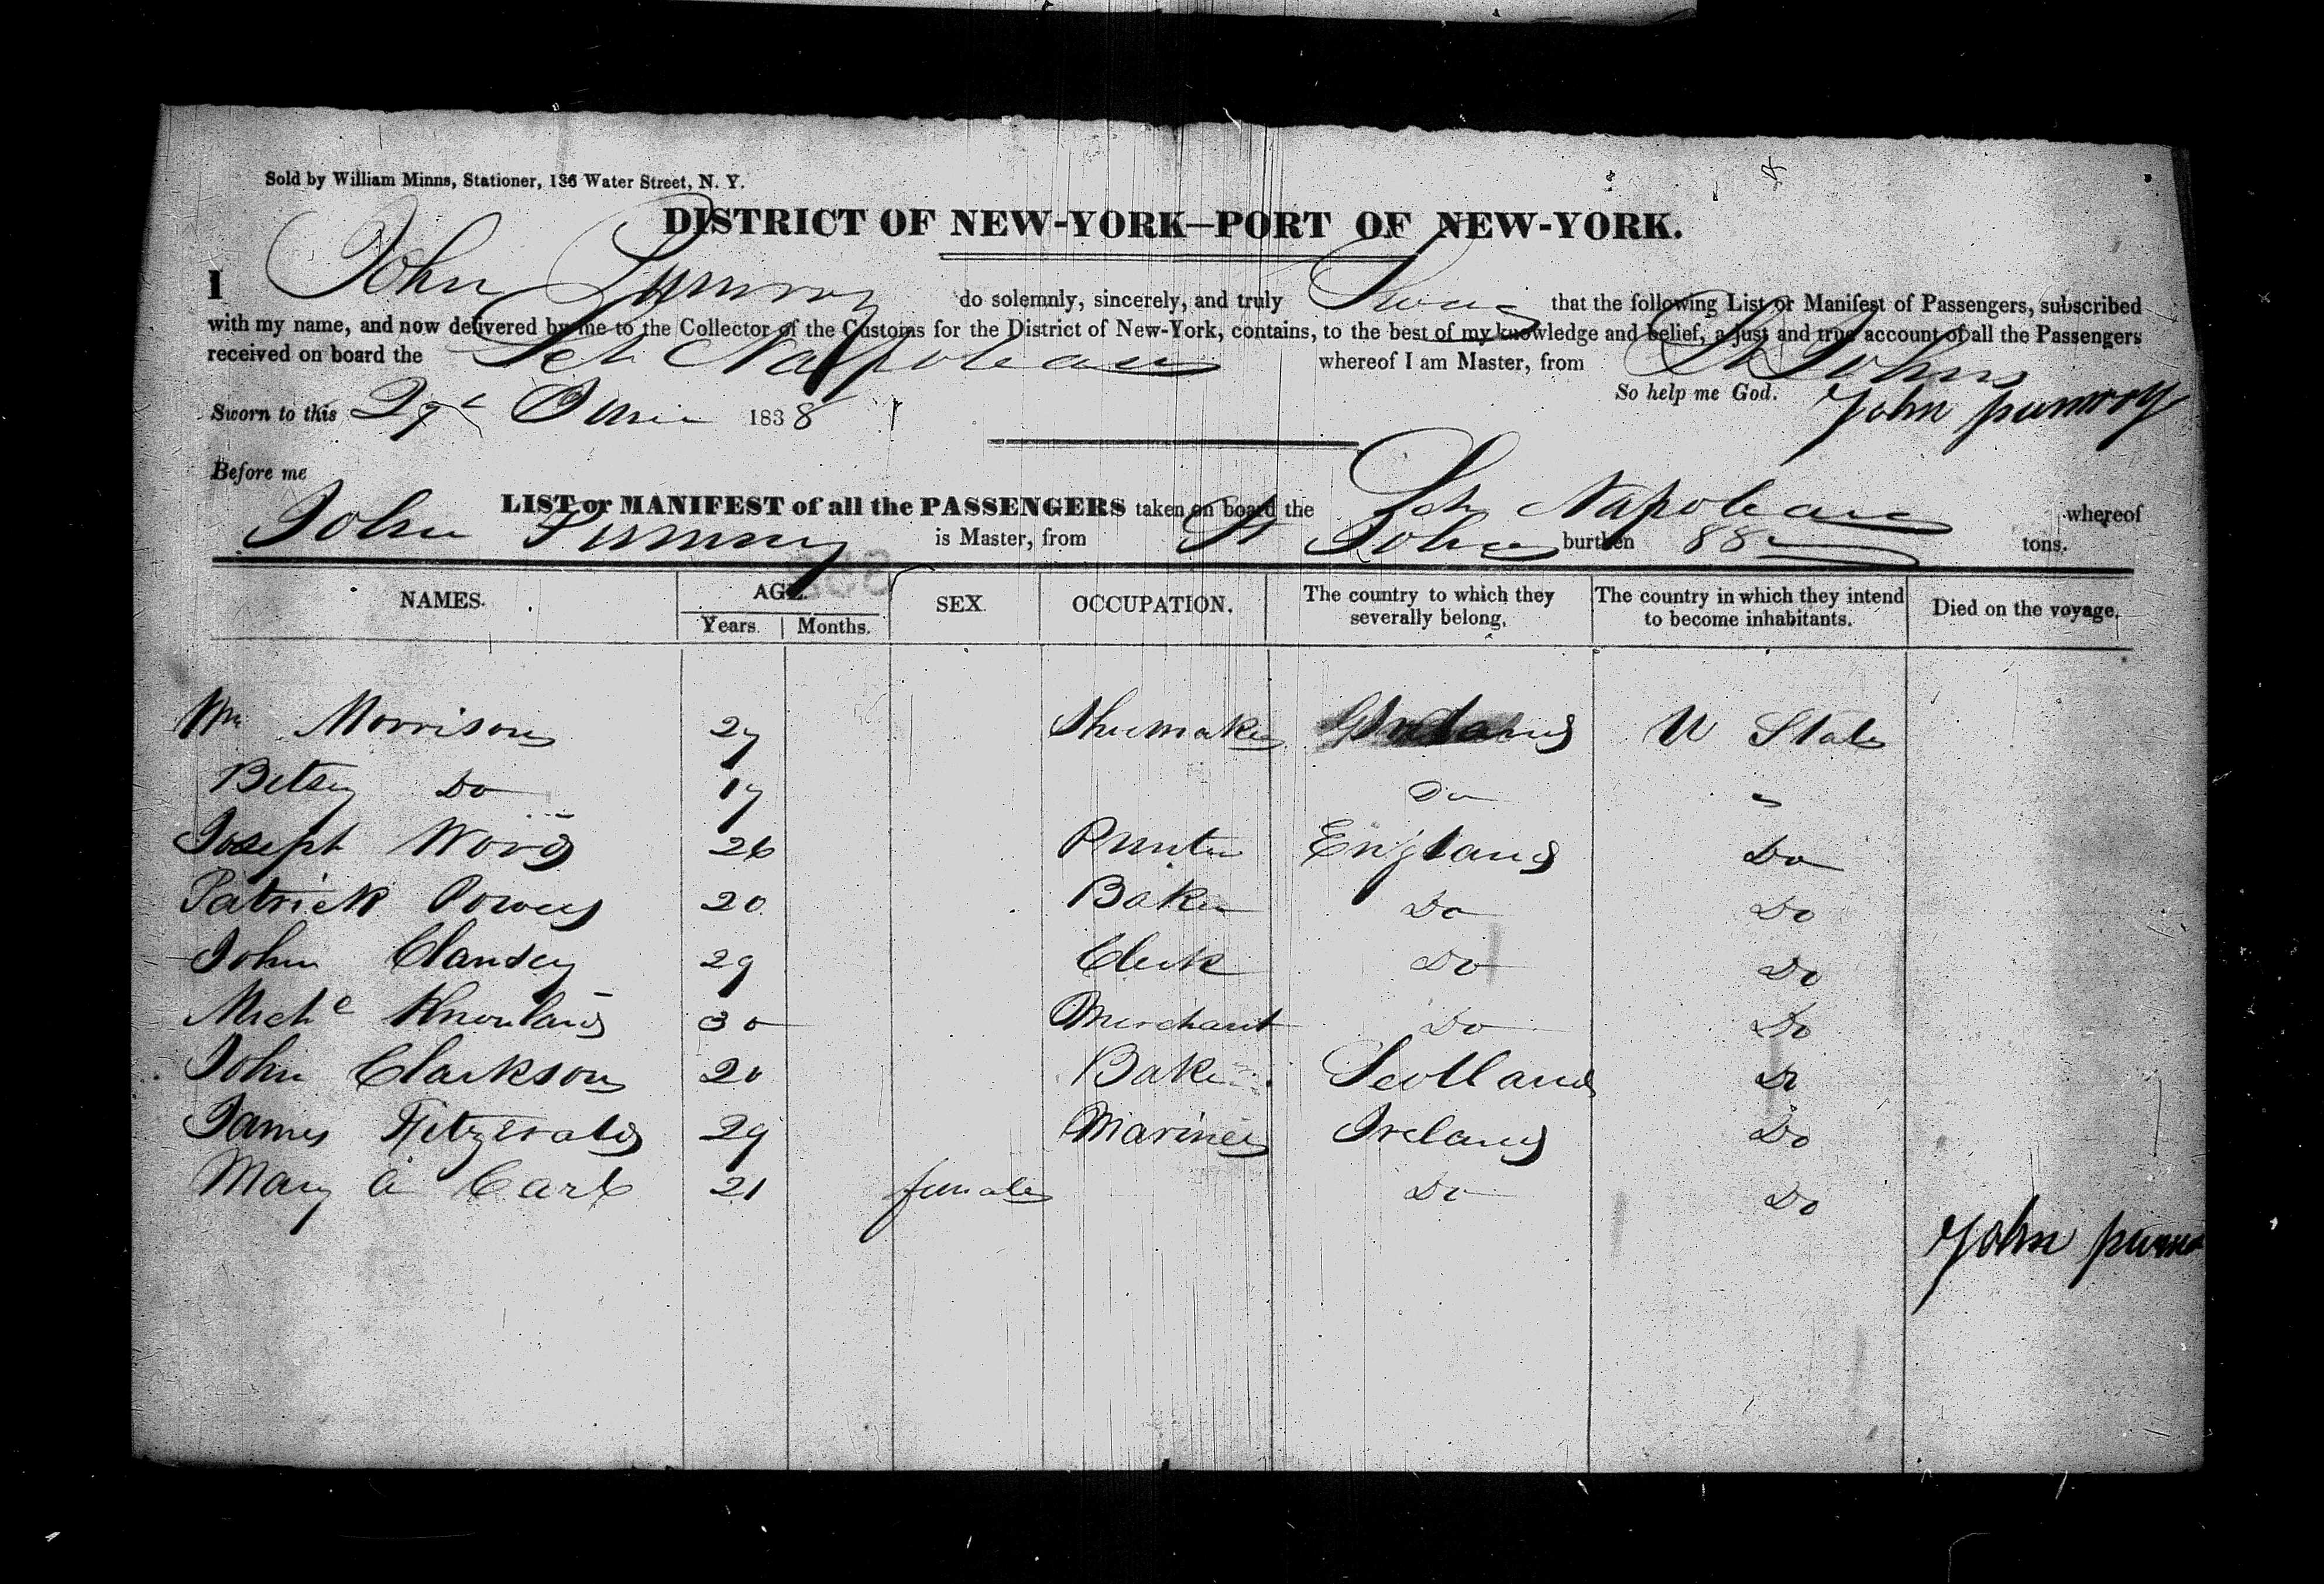 Sold by William Minns, Stationer, 136 Water Street, N. Y.
DISTRICT OF NEW-YORK—PORT OF NEW-YORK.
I John Pumroy do solemnly, sincerely, and truly Swear that the following List or Manifest of Passengers, subscribed
with my name, and now delivered by me to the Collector of the Customs for the District of New-York, contains, to the best of my knowledge and belief, a just and true account of all the Passengers
received on board the Sch Napolean whereof I am Master, from St Johns
So help me God.
Sworn to this 29th June 1838 John pumroy
Before me
LIST or MANIFEST of all the PASSENGERS taken on board the Sch Napolean whereof
John Pumroy is Master, from St Johns burthen 88 tons.
NAMES. AGE. SEX. OCCUPATION. The country to which they severally belong. The country in which they intend to become inhabitants. Died on the voyage.
Years. Months.
Wm Morrison 27 Shumaker U States
Betsey Do 17 Do "
Joseph Word 26 England Do
Patrick Power 20 Baker Do Do
John Clansey 29 Clerk Do Do
Michl Knowland 30 Merchant Do Do
John Clarkson 20 Baker Scotland Do
James Fitzgerald 29 Mariner Ireland Do
Mary A Carl 21 female Do Do
John